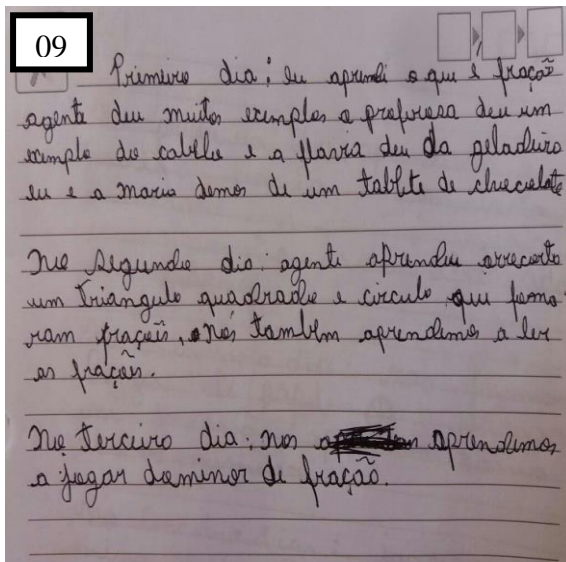 09
Primeiro dia: eu aprendi o que é fração
agente deu muitos exemplos a profresora deu um
exemplo do cabelo e a flavia deu da geladeira
eu e a maria demos de um tablete de chocolate
No segundo dia: agente aprendeu arrecorta
um triangulo quadrado e circulo que forma
ram frações, nós também aprendemos a ler
as frações.
No terceiro dia: nos aprendemos
a jogar dominor de fração.